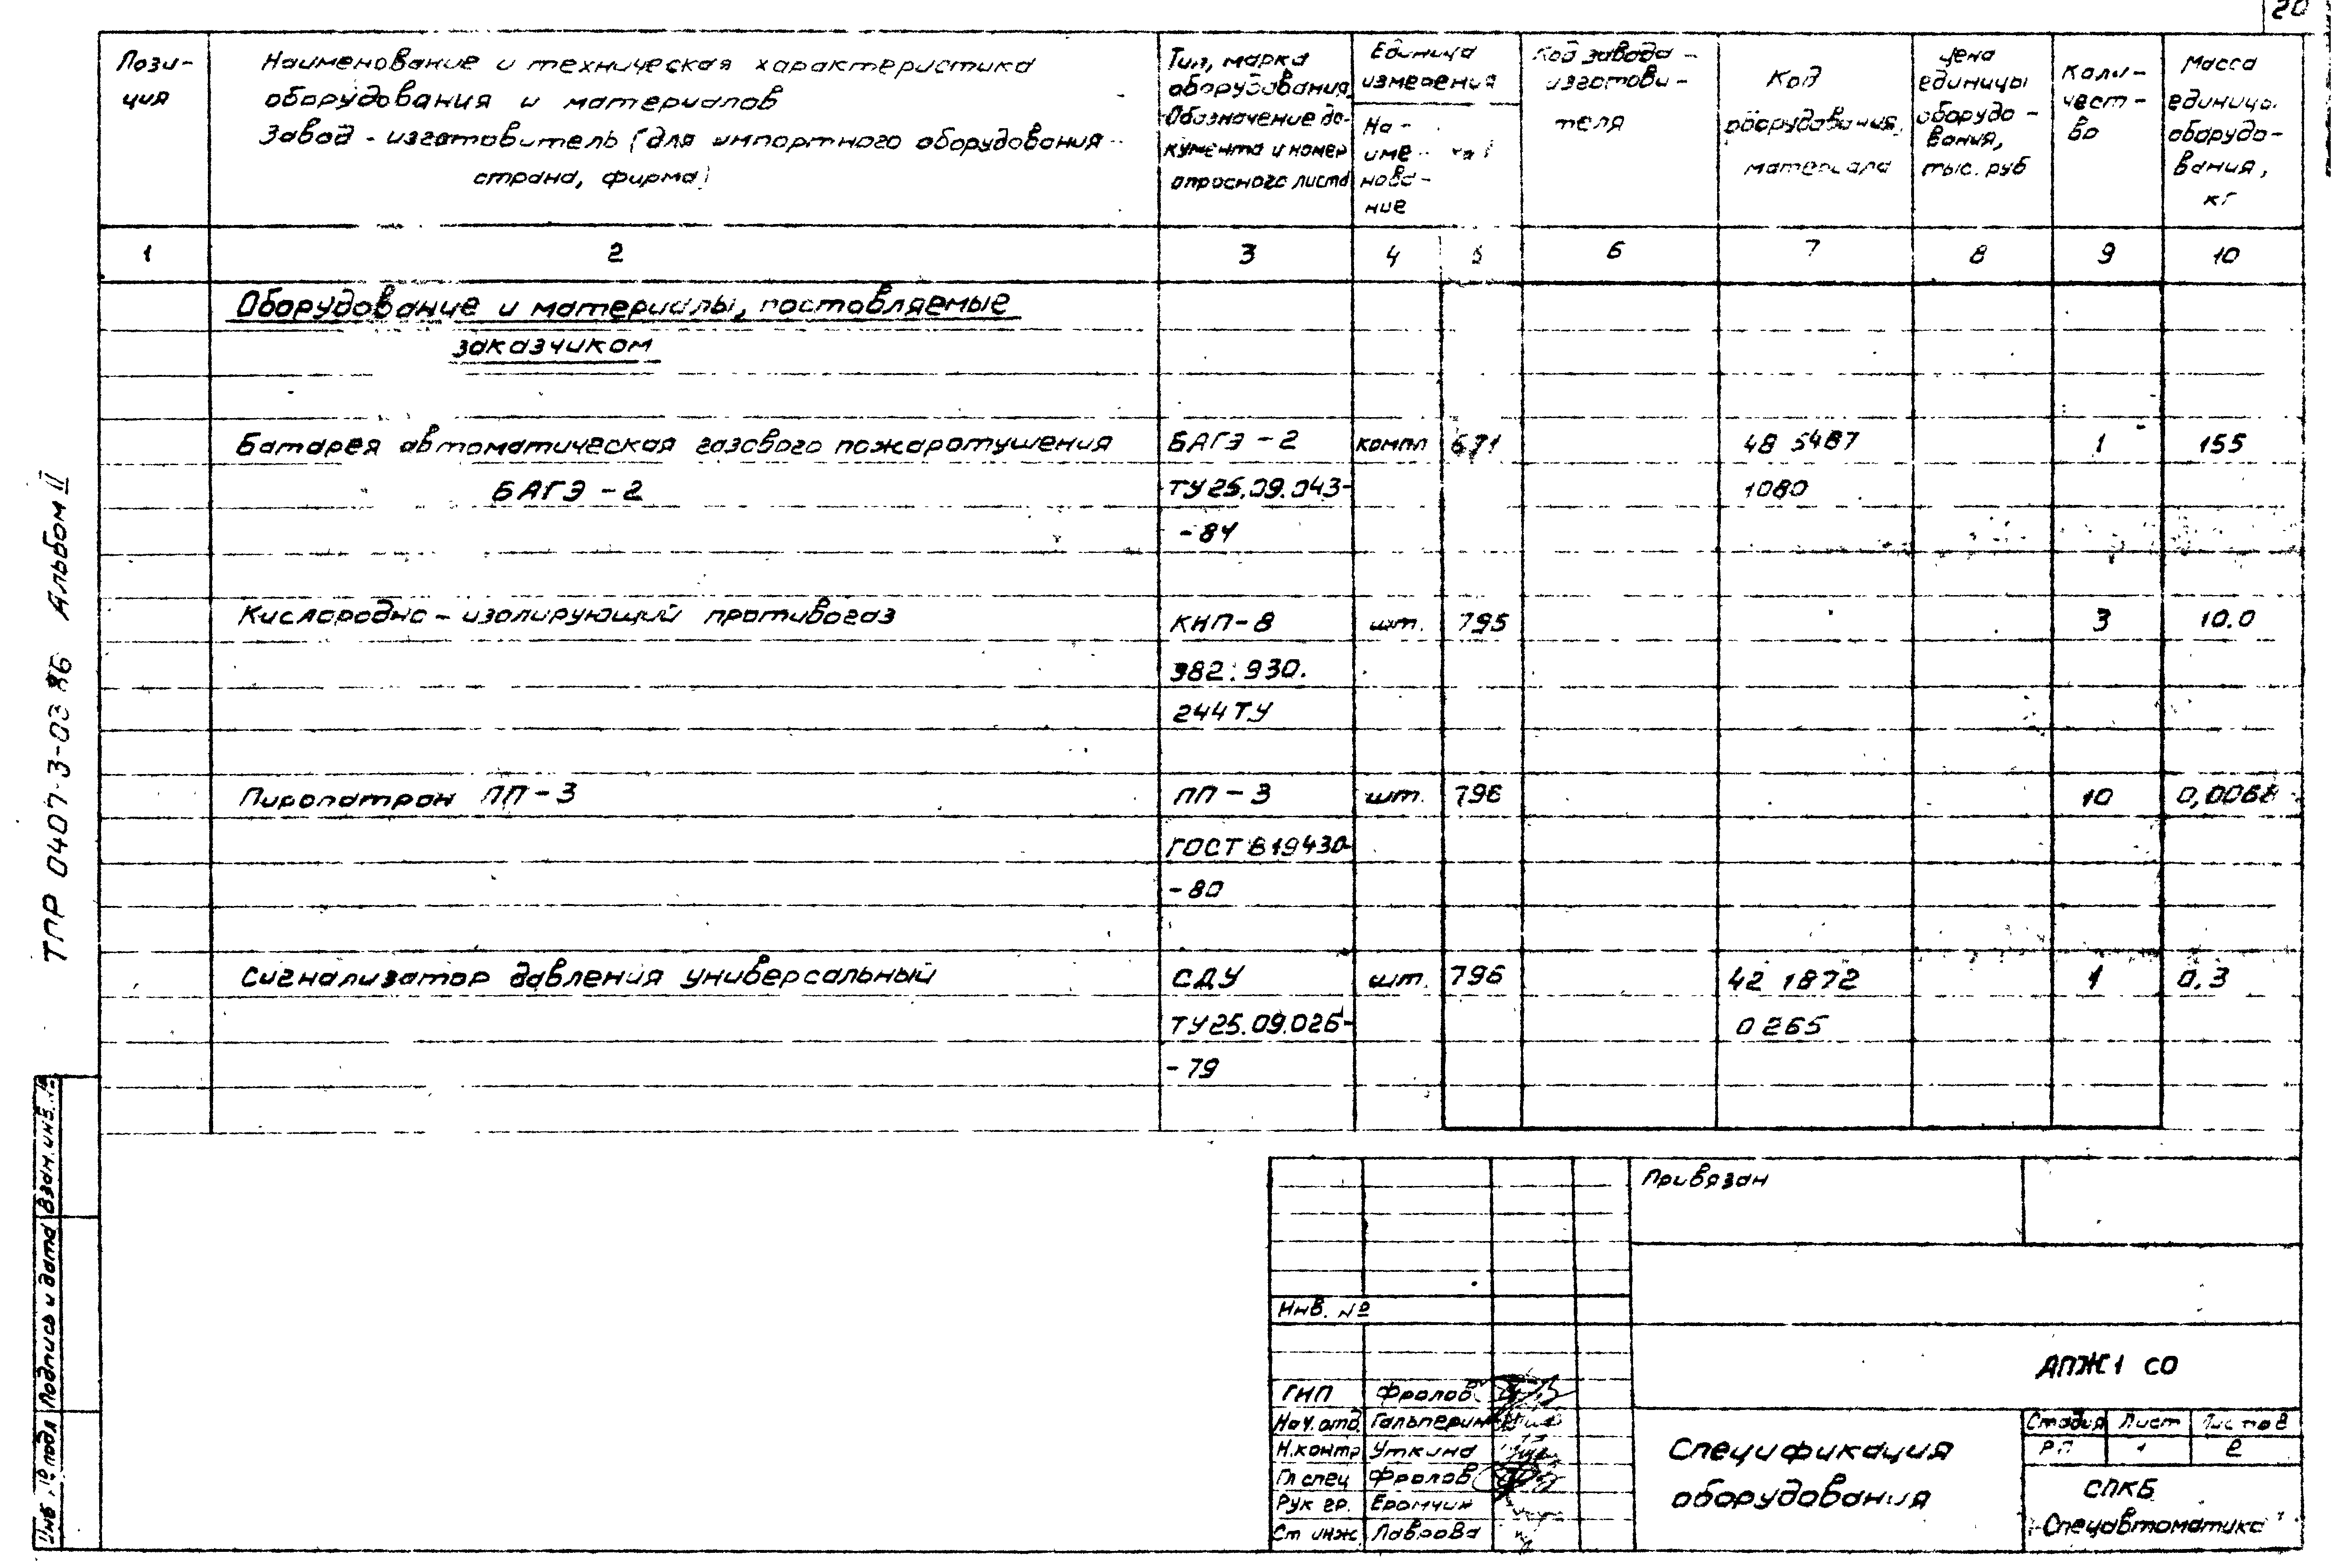 20
Пози-
ция
Наименование и техническая характеристика
оборудования и материалов
Завод-изготовитель (для импортного оборудования -
страна, фирма)
Тип, марка
оборудования.
Обозначение до-
кумента и номер
опросного листа
Единица
измерения
На-
име-
нова-
ние
Код
Код завода-
изготови-
теля
Код
оборудования,
материала
Цена
единицы
оборудо-
вания,
тыс. руб
Коли-
чест-
во
Масса
единицы
оборудо-
вания,
кг
1 2 3 4 5 6 7 8 9 10
Оборудование и материалы, поставляемые
заказчиком
Батарея автоматическая газового пожаротушения БАГЭ-2 компл 671 48 5487 1 155
БАГЭ-2 ТУ25.09.043- 1080
-84
Кислородно-изолирующий противогаз КИП-8 шт. 795 3 10.0
982.930.
244ТУ
Пиропатрон ПП-3 ПП-3 шт. 796 10 0,0068
ГОСТ В19430-
-80
Сигнализатор давления универсальный СДУ шт. 796 42 1872 1 0.3
ТУ25.09.026- 0265
-79
ТПР 0407-3-03.86 Альбом II
Инв. № подл Подпись и дата Взам.инв.№
Привязан
Инв. №
АПЖ1 СО
ГИП Фролов
Нач.отд. Гальперин
Н.контр Уткина
Гл спец Фролов
Рук гр. Еромчик
Ст инж. Лаврова
Спецификация
оборудования
Стадия Лист Листов
РП 1 2
СПКБ
"Спецавтоматика"